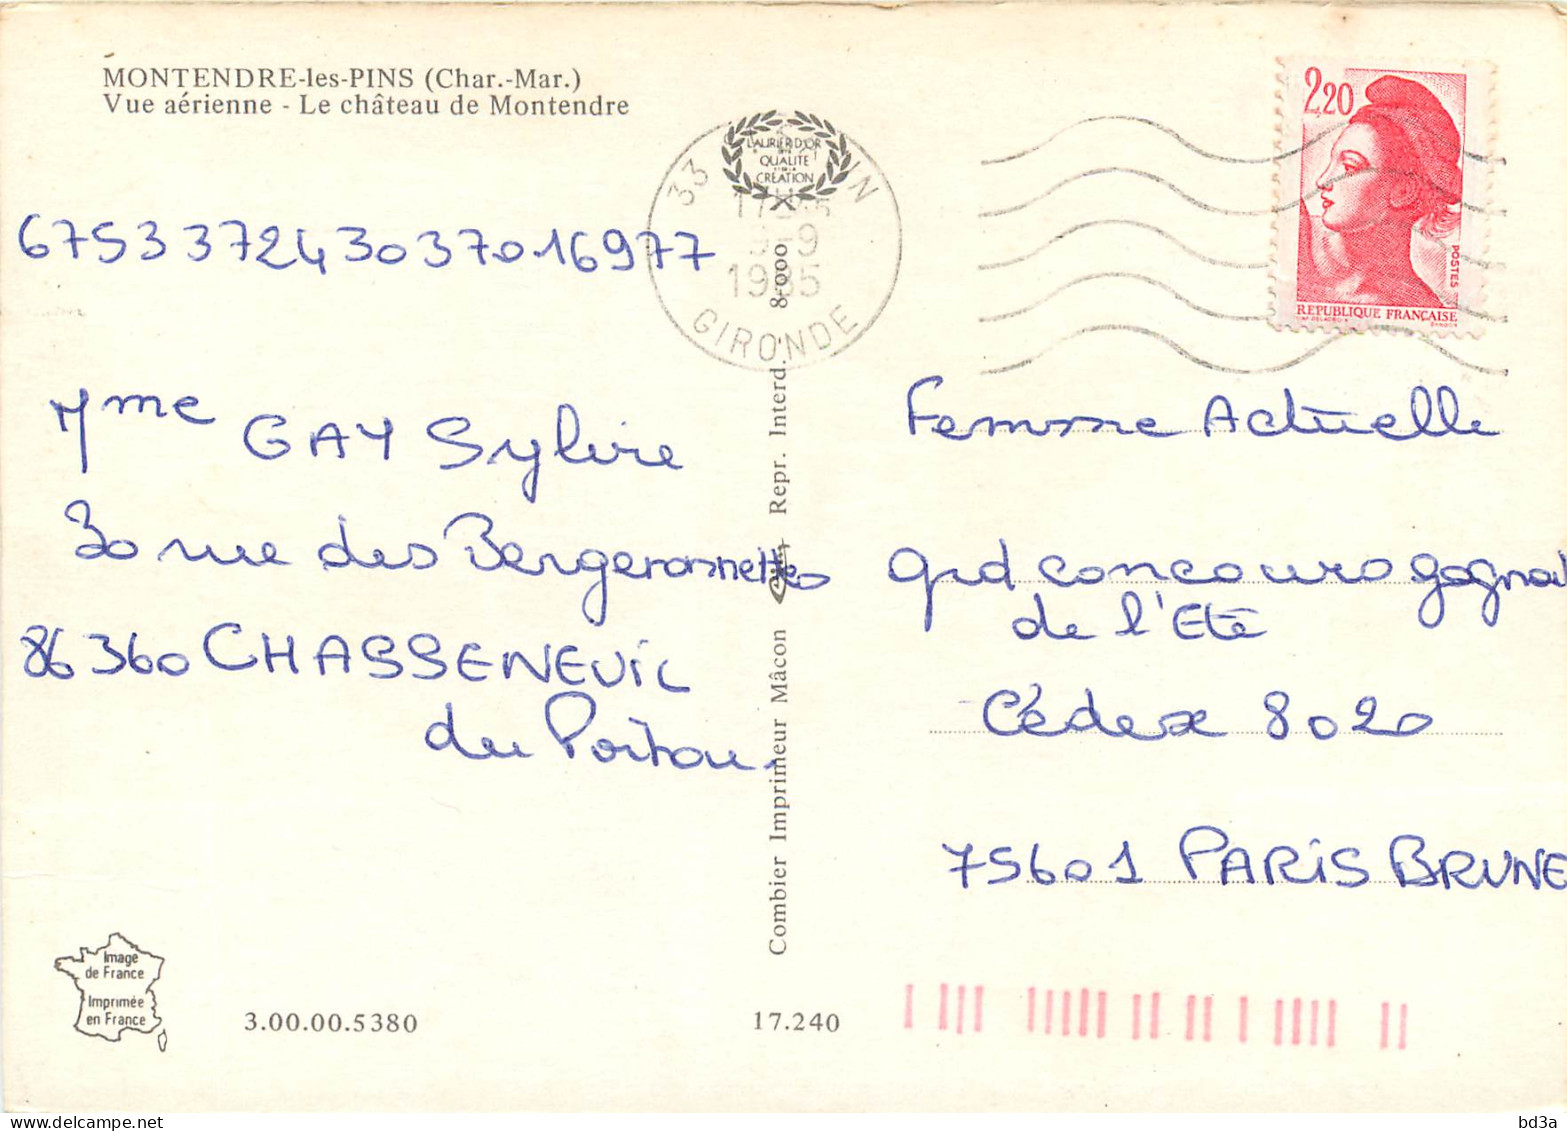 MONTENDRE-les-PINS (Char.-Mar.)
Vue aérienne - Le château de Montendre
L'AURIER D'OR
QUALITE
CREATION
33
IN
9-9
1985
GIRONDE
2,20
POSTES
REPUBLIQUE FRANÇAISE
67533724303701697 7
Mme GAY Sylvie
30 rue des Bergeronnettes
86360 CHASSENEUIL
du Poitou.
Combier Imprimeur Mâcon
Repr. Interd. 8-000
Femme Actuelle
grd concours gagnat
de l'Eté
Cédex 8020
75601 PARIS BRUNE
Image
de France
Imprimée
en France
3.00.00.5380
17.240
bd3a